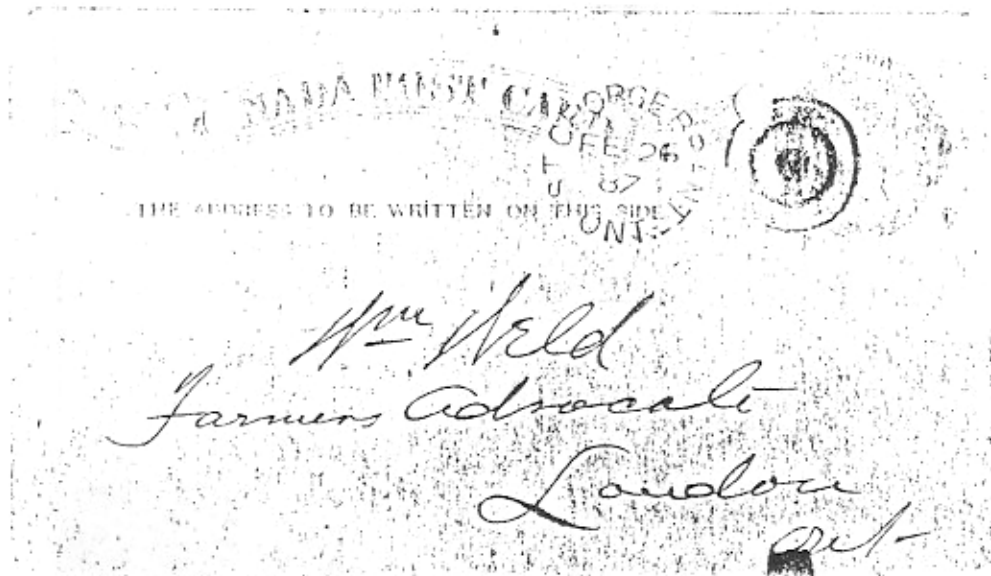 CANADA POST CARD
ST GEORGE
FE 26
87
ONT
THE ADDRESS TO BE WRITTEN ON THIS SIDE
Wm Weld
Farmers Advocate
London
Ont